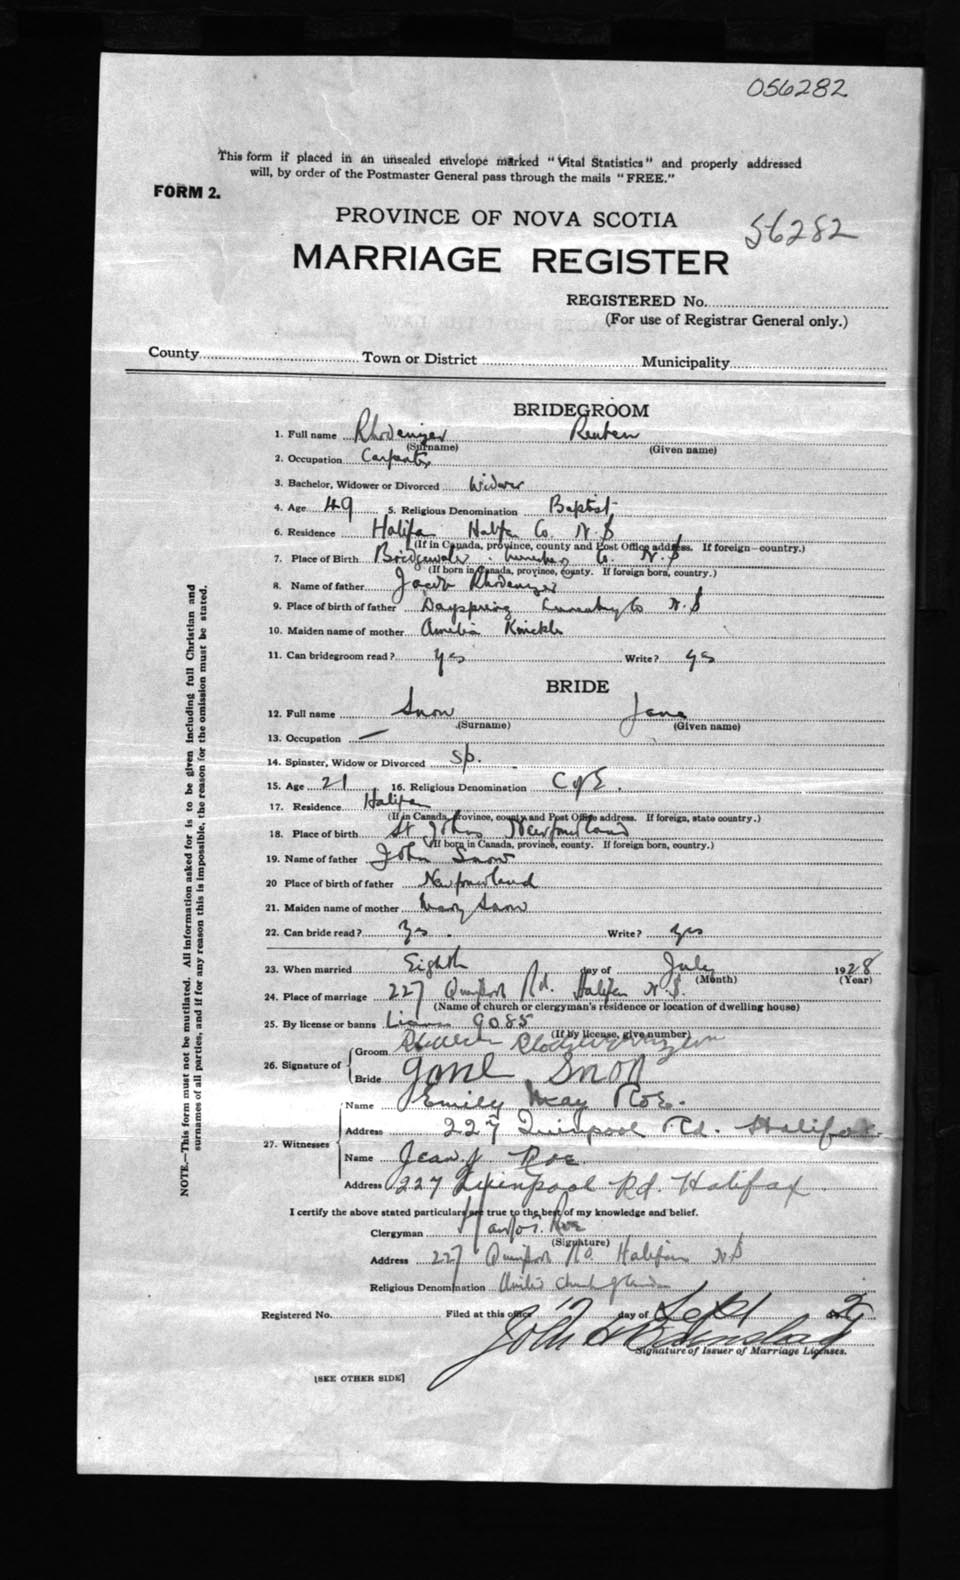 056282
This form if placed in an unsealed envelope marked "Vital Statistics" and properly addressed
will, by order of the Postmaster General pass through the mails "FREE."
FORM 2.
PROVINCE OF NOVA SCOTIA
56282
MARRIAGE REGISTER
REGISTERED No.
(For use of Registrar General only.)
County Town or District Municipality
BRIDEGROOM
1. Full name Rhodenizer Reuben
(Surname) (Given name)
2. Occupation Carpenter
3. Bachelor, Widower or Divorced Widower
4. Age 49 5. Religious Denomination Baptist
6. Residence Halifax Halifax Co. N.S
(If in Canada, province, county and Post Office address. If foreign—country.)
7. Place of Birth Bridgewater Lunenburg Co. N.S
(If born in Canada, province, county. If foreign born, country.)
8. Name of father Jacob Rhodenizer
9. Place of birth of father Dayspring Lunenburg Co N.S
10. Maiden name of mother Amelia Knickle
11. Can bridegroom read? yes Write? yes
BRIDE
12. Full name Snow Jane
(Surname) (Given name)
13. Occupation —
14. Spinster, Widow or Divorced Sp.
15. Age 21 16. Religious Denomination C of E.
17. Residence Halifax
(If in Canada, province, county and Post Office address. If foreign, state country.)
18. Place of birth St Johns Newfoundland
(If born in Canada, province, county. If foreign born, country.)
19. Name of father John Snow
20 Place of birth of father Newfoundland
21. Maiden name of mother Mary Snow
22. Can bride read? Yes. Write? yes
23. When married Eighth day of July 1928
(Month) (Year)
24. Place of marriage 227 Quinpool Rd. Halifax N.S.
(Name of church or clergyman's residence or location of dwelling house)
25. By license or banns License 9085
(If by license, give number)
26. Signature of Groom
Bride Jane Snow
27. Witnesses
Name Emily May Roe.
Address 227 Quinpool Rd. Halifax.
Name Jean J Roe
Address 227 Quinpool Rd. Halifax
I certify the above stated particulars are true to the best of my knowledge and belief.
Clergyman Roe
(Signature)
Address 227 Quinpool Rd. Halifax N.S
Religious Denomination United Church of Canada
Registered No. Filed at this office 17 day of Sept
John H
Signature of Issuer of Marriage Licenses.
[SEE OTHER SIDE]
NOTE.—This form must not be mutilated. All information asked for is to be given including full Christian and
surnames of all parties, and if for any reason this is impossible, the reason for the omission must be stated.